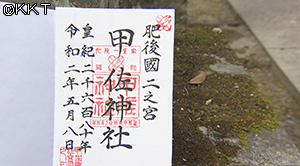 ©KKT
肥後國二之宮
甲佐神社
皇紀二千六百八十年
令和二年五月八日